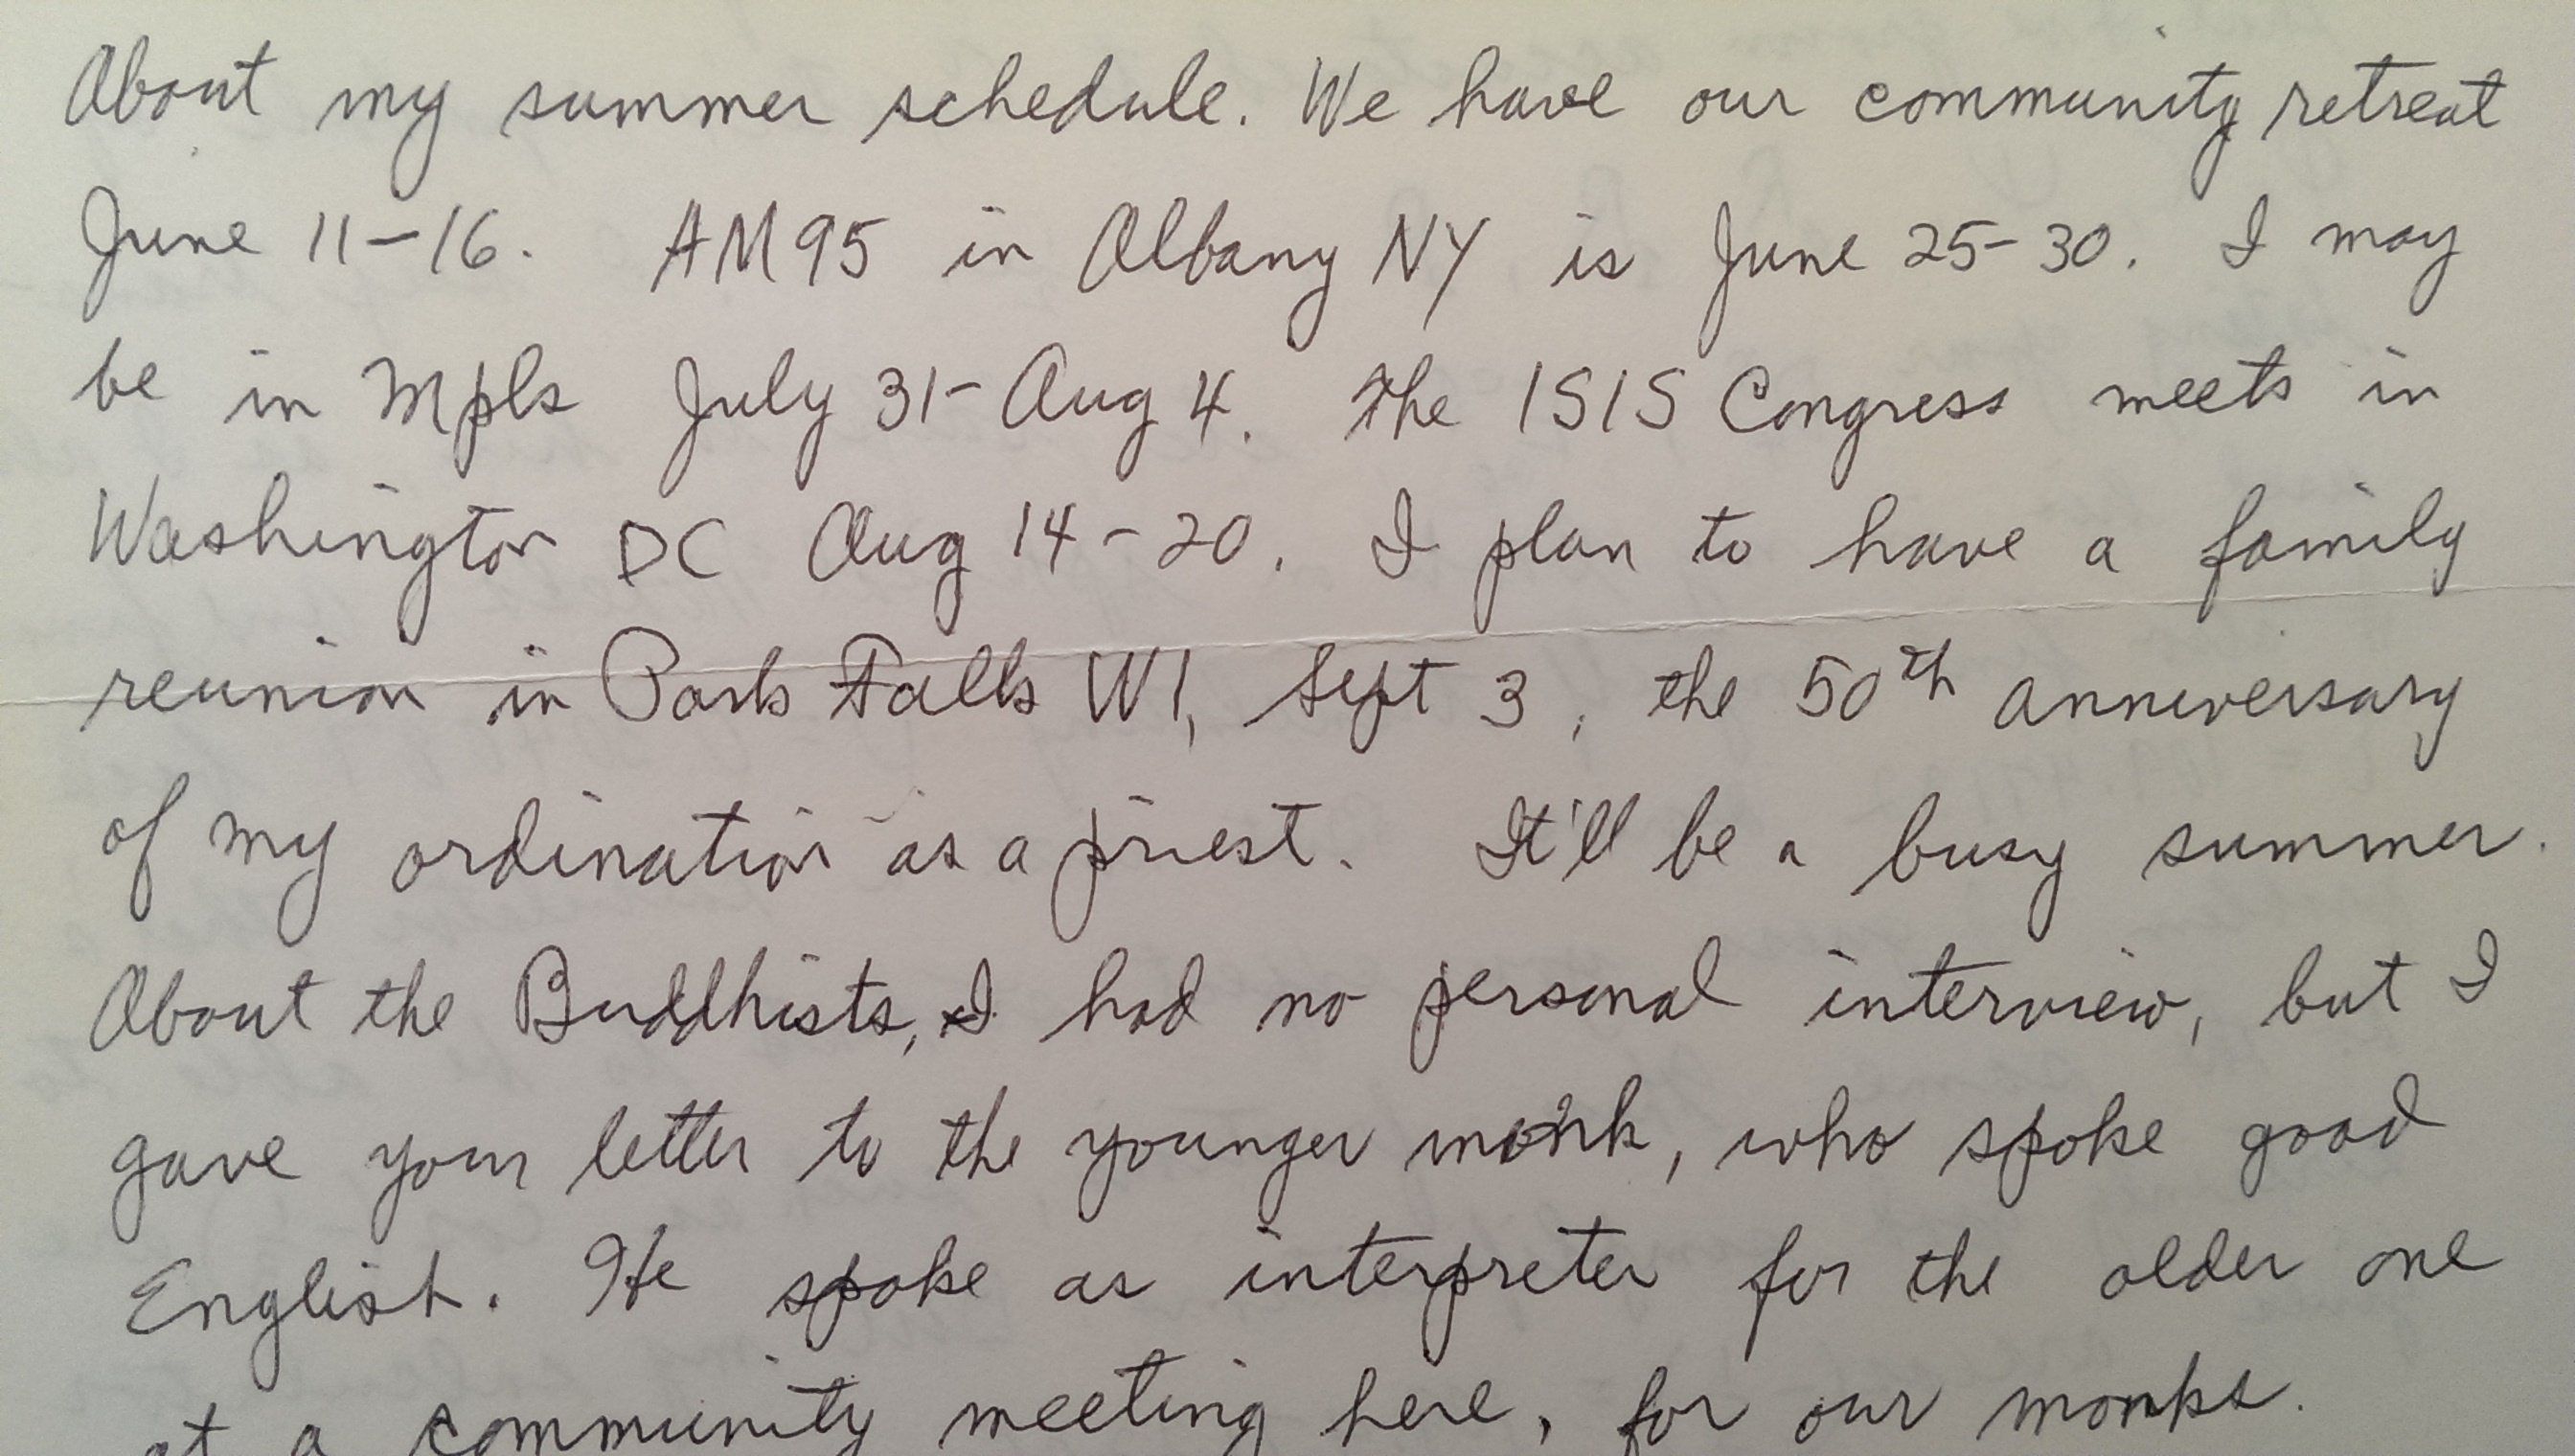 About my summer schedule. We have our community retreat
June 11-16. AM95 in Albany NY is June 25-30. I may
be in Mpls July 31-Aug 4. The ISIS Congress meets in
Washington DC Aug 14-20. I plan to have a family
reunion in Park Falls WI, Sept 3, the 50th anniversary
of my ordination as a priest. It'll be a busy summer.
About the Buddhists, I had no personal interview, but I
gave your letter to the younger monk, who spoke good
English. He spoke as interpreter for the older one
at a community meeting here, for our monks.